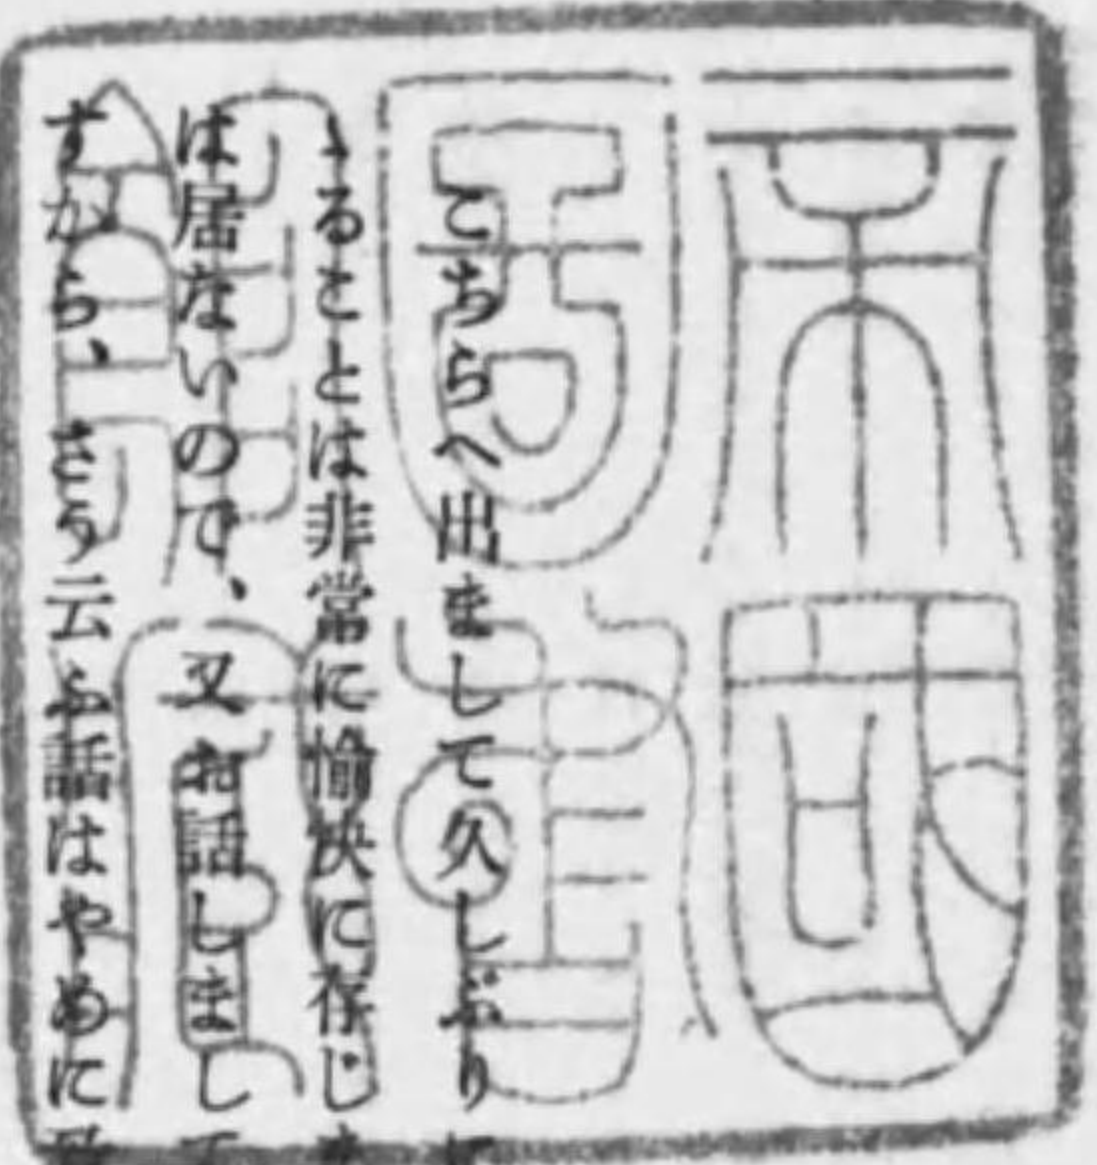 こちらへ出まして久しぶりに
ゝることは非常に愉快に存じま
は居ないので、又お話しまして
すから、さう云ふ話はやめに致
帝國
圖書
館藏